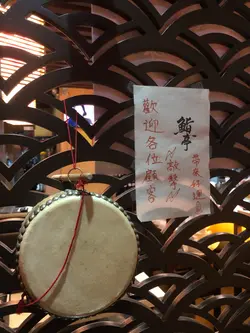 歡迎各位顧客
鮨亭
帶來好運